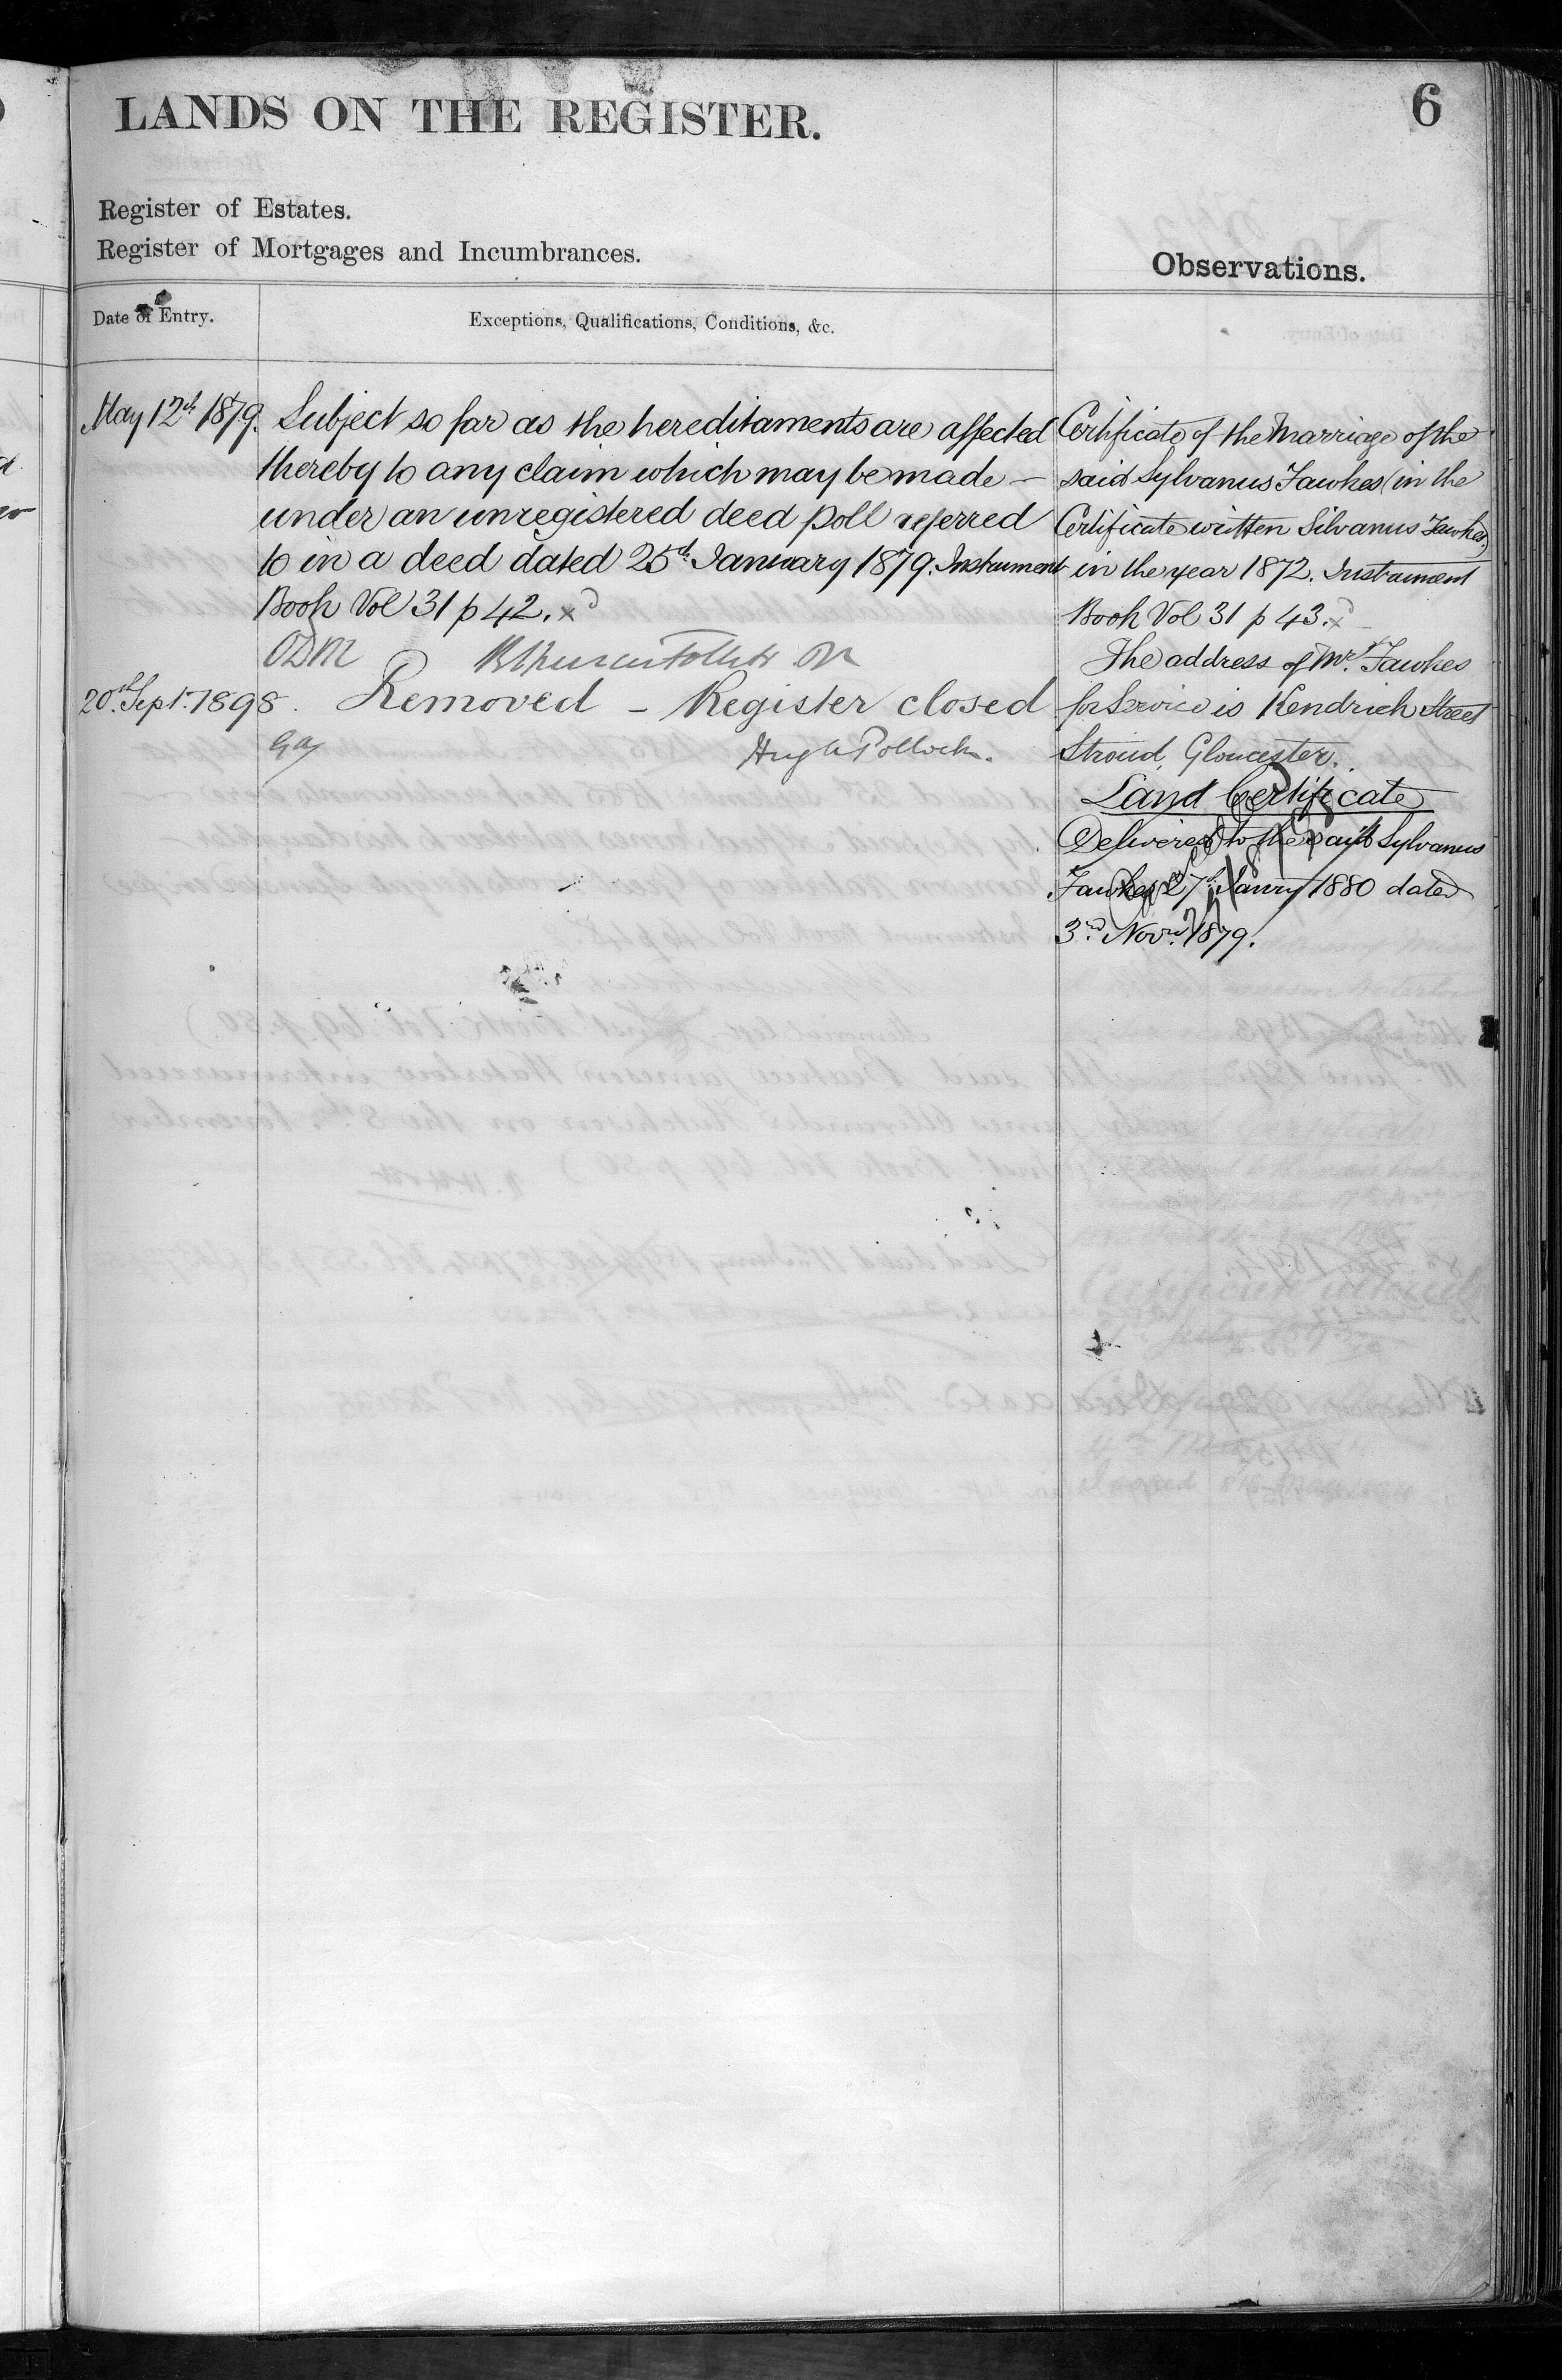 LANDS ON THE REGISTER.
6
Register of Estates.
Register of Mortgages and Incumbrances.
Observations.
Date of Entry.
Exceptions, Qualifications, Conditions, &c.
May 12th 1879.
Subject so far as the hereditaments are affected
thereby to any claim which may be made —
under an unregistered deed poll referred
to in a deed dated 25th January 1879. Instrument
Book Vol 31 p 42. xd
ODM
20th Sept. 1898. Removed – Register closed
Hugh Pollock.
Certificate of the Marriage of the
said Sylvanus Fawkes (in the
Certificate written Silvanus Fawkes)
in the year 1872. Instrument
Book Vol 31 p 43. xd
The address of Mr. Fawkes
for Service is Kendrick Street
Stroud, Gloucester.
Land Certificate
Delivered to the said Sylvanus
Fawkes 27th Janry 1880 dated
3rd Novr. 1879.